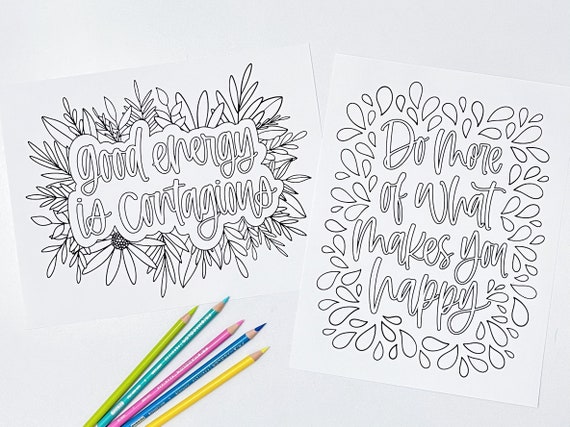 good energy
is contagious
Do more
of what
makes you
happy